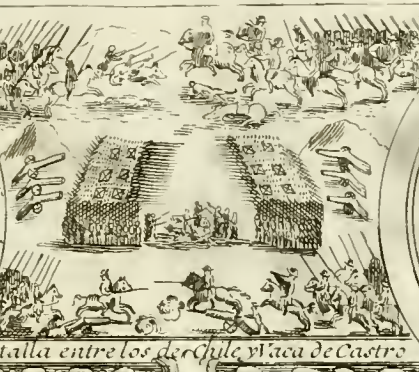 talla entre los de Chile y Vaca de Castro